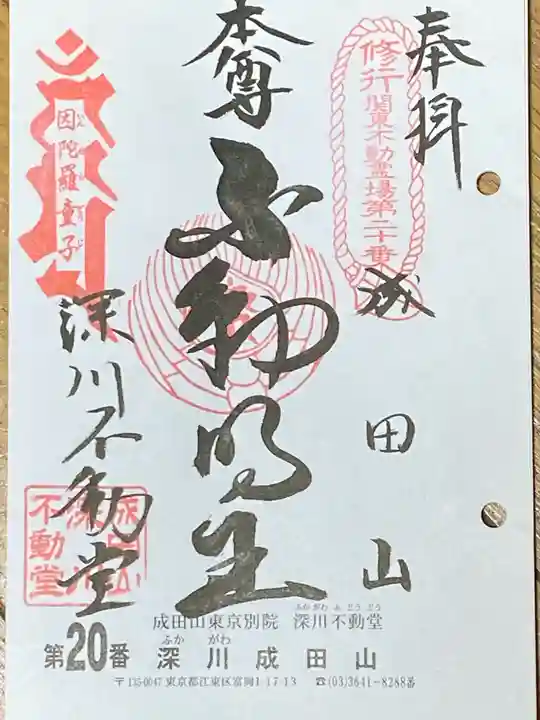 奉拝
修行 関東不動霊場第二十番
成田山
本尊
不動明王
因陀羅童子
深川不動堂
成田山
深川
不動堂
成田山東京別院 深川不動堂
ふかがわ ふどうどう
第20番 深川成田山
ふか がわ
〒135-0047 東京都江東区富岡1-17-13 ☎(03)3641-8288番